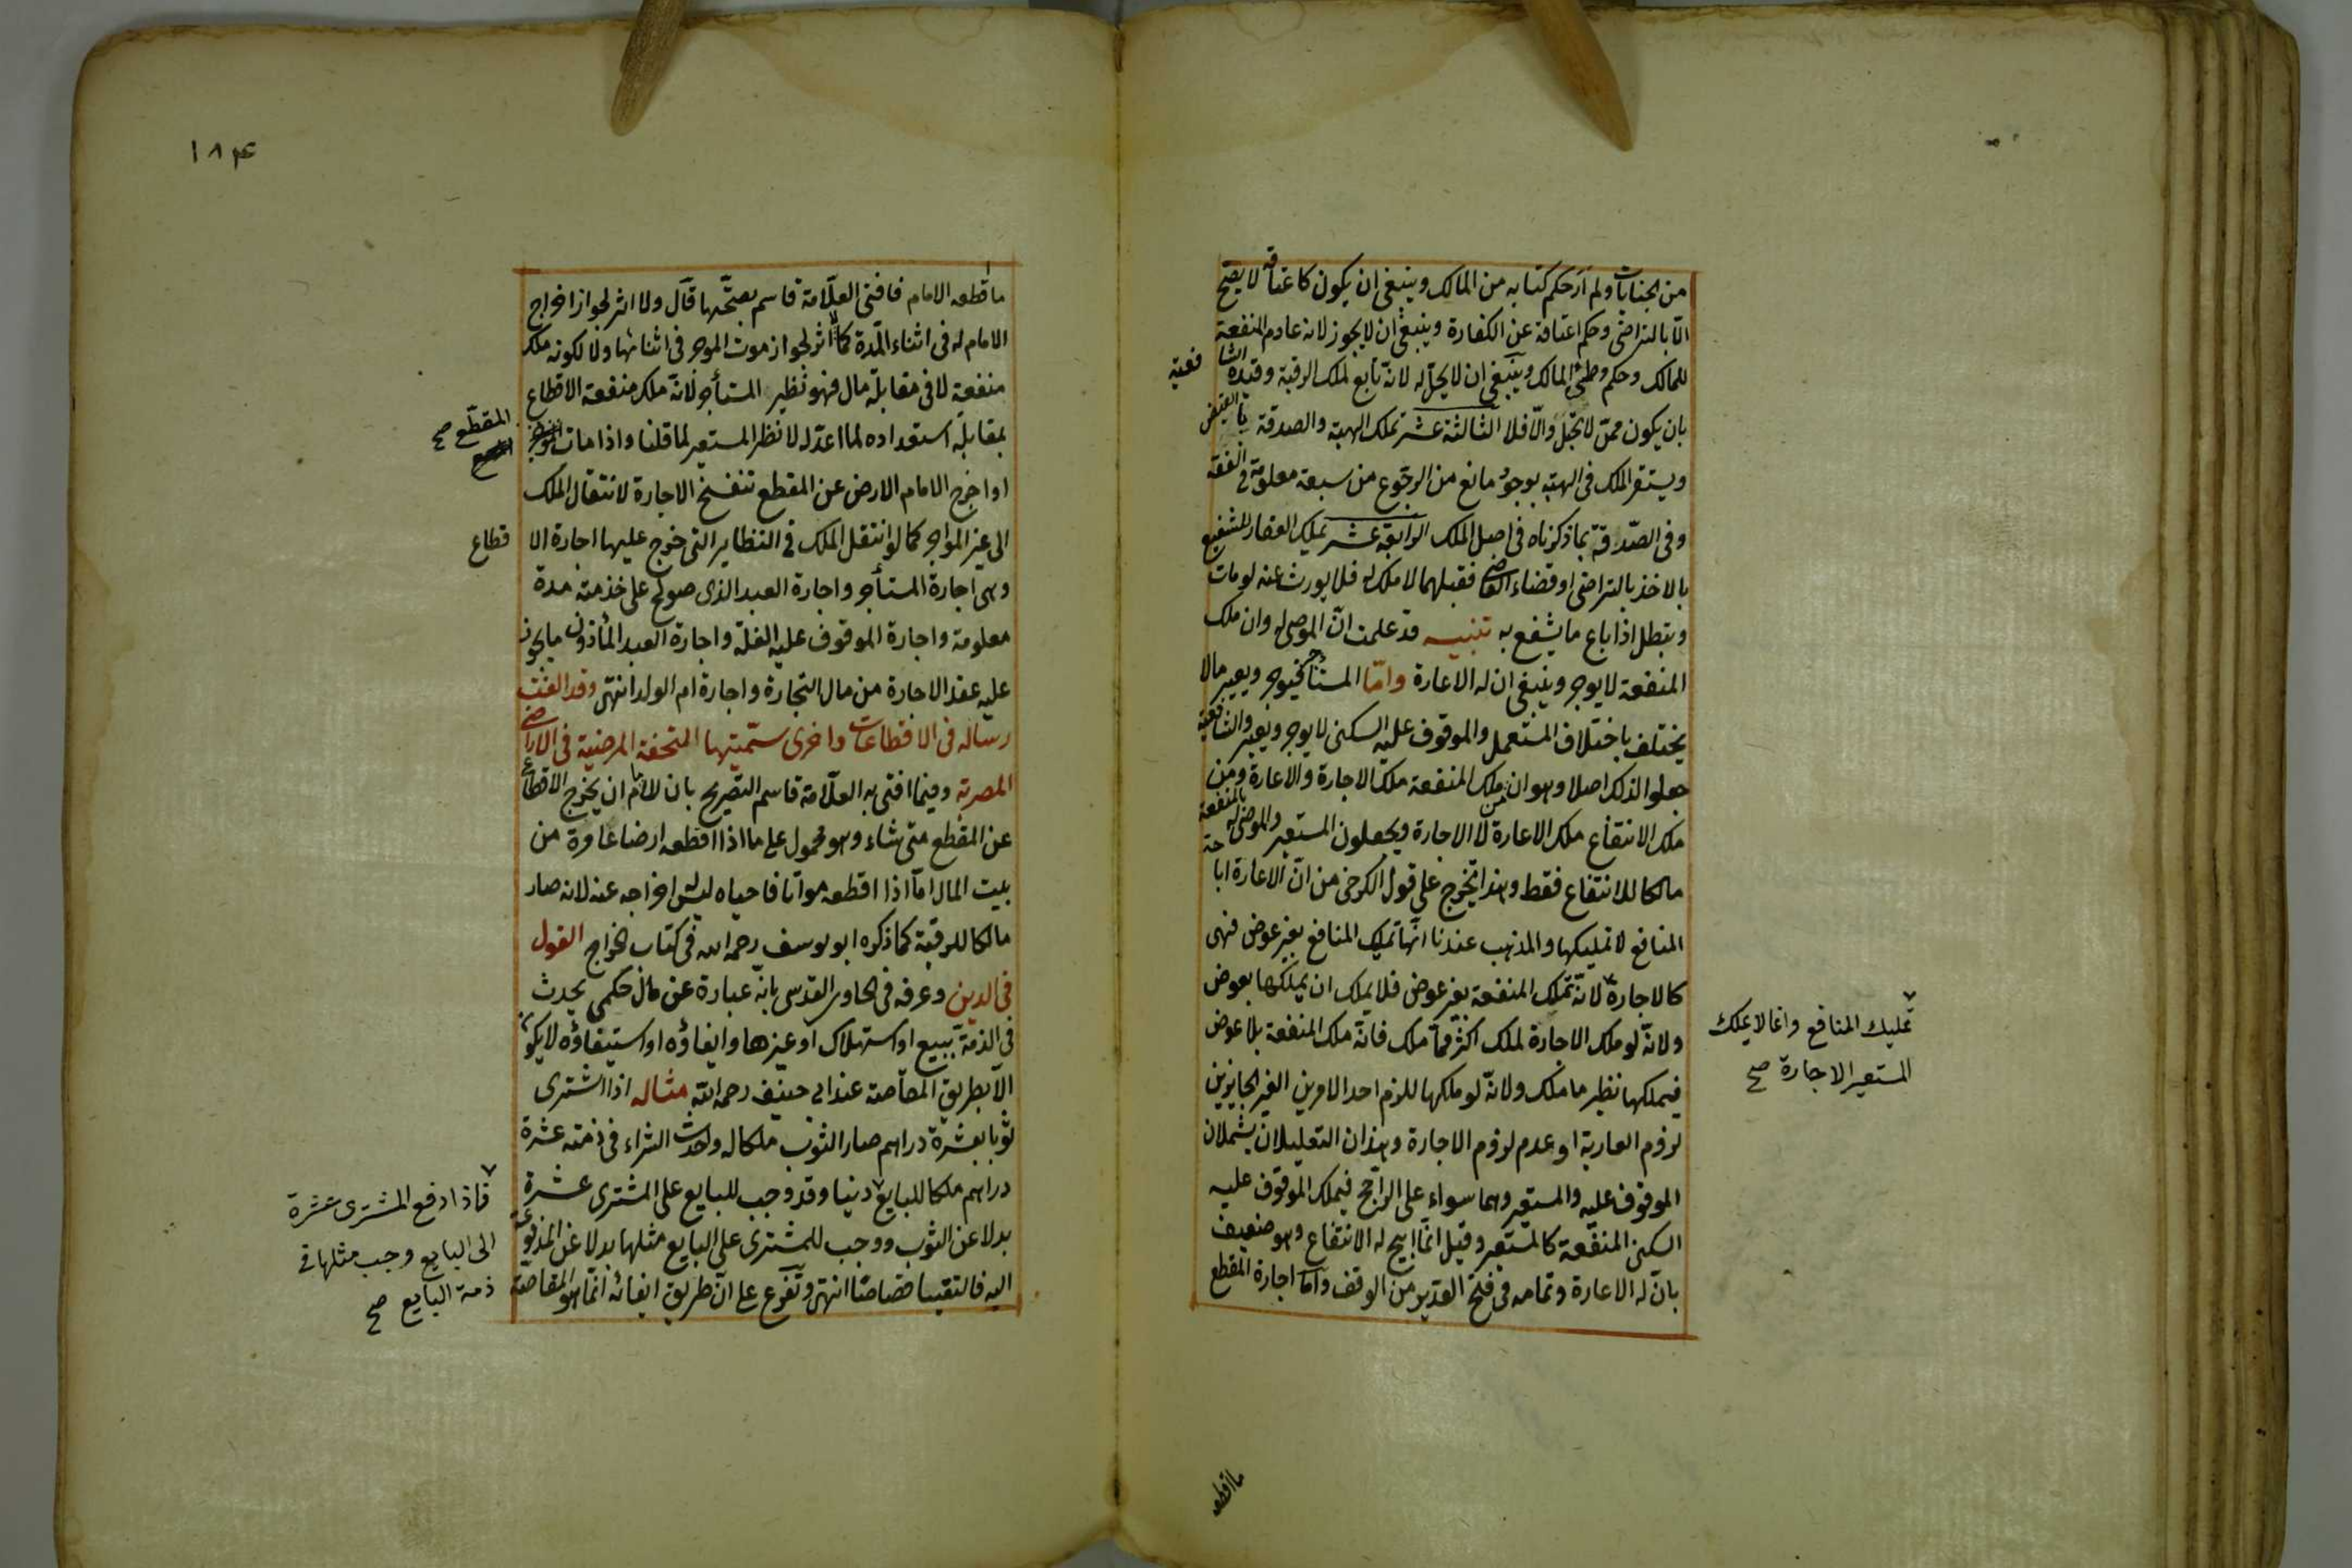 من الجنايات ولم أر حكم كتابه من المالك وينبغي ان يكون كاعتاقه لا يصح
الّا بالتراضي وحكم اعتاقه عن الكفارة وينبغي ان لا يجوز لانه عادم المنفعة
للمالك وحكم وطئ المالك وينبغي ان لا يحلّ له لانه تابع لملك الرقبة وقيّده الشا
فعية
بان يكون ممن لا تحبل والّا فلا الثالثة عشر تملك الهبة والصدقة بالقبض
ويستقر الملك في الهبة بوجود مانع من الرجوع من سبعة معلومة في الفقه
وفي الصّدقة بما ذكرناه في اصل الملك الرابعة عشر تملك العقار للشفيع
بالاخذ بالتراضي او قضاء القاضي فقبلهما لا ملك له فلا يورث عنه لو مات
وبتطل اذا باع ما يشفع به تنبيه قد علمت انّ الموصى له وان ملك
المنفعة لا يوجر وينبغي ان له الاعارة وامّا المستأجر فيوجر ويعير مالا
يختلف باختلاف المستعمل والموقوف عليه السكنى لا يوجر ويعير والشافعية
جعلوا لذلك اصلا وهو ان من ملك المنفعة ملك الاجارة والاعارة ومن
ملك الانتفاع ملك الاعارة لا الاجارة ويجعلون المستعير والموصى له بالمنفعة
مالكا للانتفاع فقط وهذا يتخرج على قول الكرخي من انّ الاعارة ابا حة
المنافع لا تمليكها والمذهب عندنا انّها تمليك المنافع بغير عوض فهي
كالاجارة لانّه تملك المنفعة بغير عوض فلا يملك ان يملكها بعوض
تمليك المنافع وانما لا يملك
المستعير الاجارة صح
ولانّه لو ملك الاجارة لملك اكثر ممّا ملك فانّه ملك المنفعة بلا عوض
فيملكها نظير ما ملك ولانّه لو ملكها للزم احد الامرين الغير الجايزين
لزوم العارية او عدم لزوم الاجارة وهذان التعليلان يشملان
الموقوف عليه والمستعير وهما سواء على الراجح فيملك الموقوف عليه
السكنى المنفعة كالمستعير وقيل انّما ابيح له الانتفاع وهو ضعيف
بانّ له الاعارة وتمامه في فتح القدير من الوقف وامّا اجارة المقطع
ما اقطعه
١٨٤
ما قطعه الامام فافتى العلّامة قاسم بصحّتها قال ولا اثر لجواز اخراج
الامام له في اثناء المدّة كما لا اثر لجواز موت الموجر في اثنائها ولا لكونه ملك
منفعة لا في مقابلة مال فهو نظير المستأجر لانّه ملك منفعة الاقطاع
بمقابلة استعداده لما اعدّ له لا نظر المستعير لما قلنا واذا مات
المقطع صح
او اخرج الامام الارض عن المقطع تنفسخ الاجارة لانتقال الملك
الى غير المواجر كما لو انتقل الملك في النظاير التى خرج عليها اجارة الا قطاع
وهي اجارة المستأجر واجارة العبد الذي صولح على خذمته مدة
معلومة واجارة الموقوف عليه الغلة واجارة العبد المأذون ما يجوز
عليه عقد الاجارة من مال التجارة واجارة ام الولد انتهى وقد الفت
رسالة في الاقطاعات واخرى سمّيتها التحفة المرضية في الاراضي
المصرية وفيما افتى به العلّامة قاسم التصريح بان للامام ان يخرج الاقطاع
عن المقطع متى شاء وهو محمول على ما اذا اقطعه ارضا عامرة من
بيت المال امّا اذا اقطعه مواتا فاحياه ليس اخراجه عنه لانه صار
مالكا للرقبة كما ذكره ابو يوسف رحمه الله في كتاب الخراج القول
في الدين وعرفه في الحاوى القدسى بانّه عبارة عن مال حكمي يحدث
في الذمة ببيع او استهلاك او غيرها وايفاؤه او استيفاؤه لا يكون
الّا بطريق المقاصة عند ابى حنيفه رحمه الله مثاله اذا اشترى
ثوبا بعشرة دراهم صار الثوب ملكا له وحدث الشراء في ذمته عشرة
دراهم ملكا للبايع دينا وقد وجب للبايع على المشترى عشرة
فاذا دفع المشترى عشرة
الى البايع وجب مثلها في
ذمة البايع صح
بدلا عن الثوب ووجب للمشترى على البايع مثلها بدلا عن المدفوعة
اليه فالتقيا قصاصا انتهى وتفرع على انّ طريق ايفائه انّما هو المقاصّة